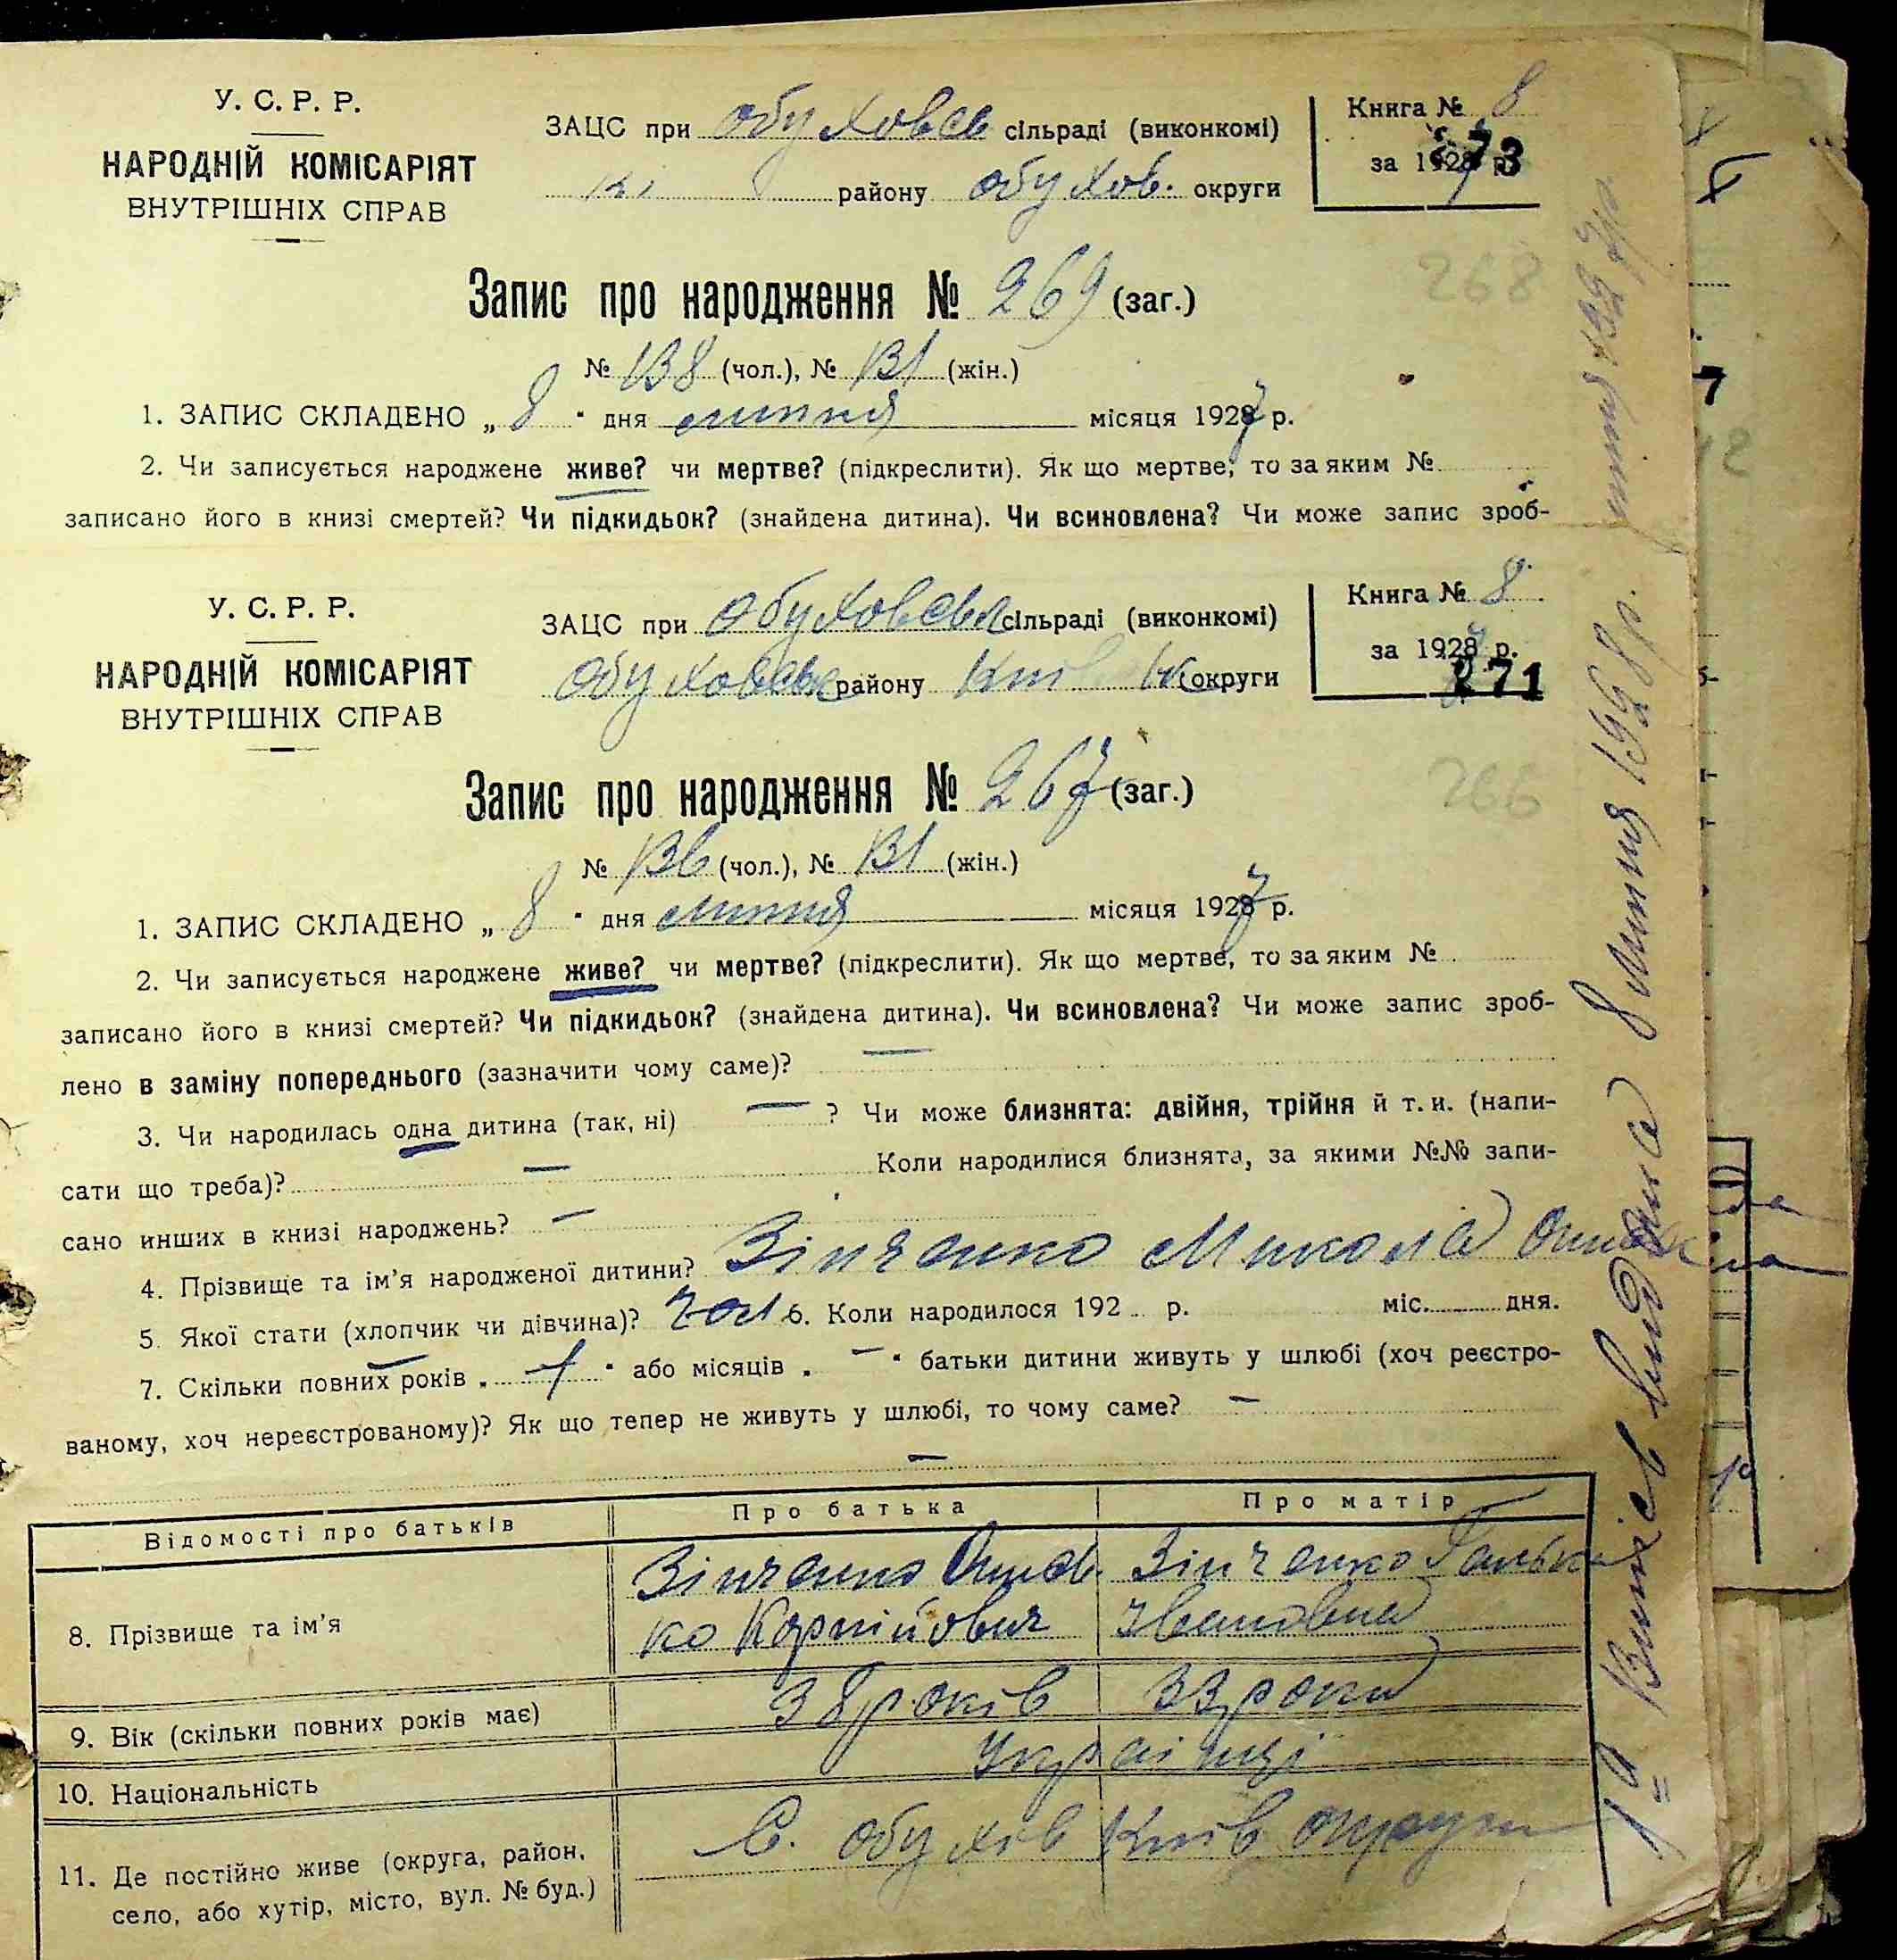 У. С. Р. Р.
НАРОДНІЙ КОМІСАРІЯТ
ВНУТРІШНІХ СПРАВ
ЗАЦС при Обуховсь сільраді (виконкомі)
району Обухов. округи
Книга № 8
за 1927 р.
273
268
Запис про народження № 269 (заг.)
№ 138 (чол.), № 131 (жін.)
1. ЗАПИС СКЛАДЕНО „ 8 " дня липня місяця 1927 р.
2. Чи записується народжене живе? чи мертве? (підкреслити). Як що мертве, то за яким №
записано його в книзі смертей? Чи підкидьок? (знайдена дитина). Чи всиновлена? Чи може запис зроб-
У. С. Р. Р.
НАРОДНІЙ КОМІСАРІЯТ
ВНУТРІШНІХ СПРАВ
ЗАЦС при Обуховськ сільраді (виконкомі)
Обуховськ району округи
Книга № 8
за 1927 р.
271
266
Запис про народження № 267 (заг.)
№ 136 (чол.), № 131 (жін.)
1. ЗАПИС СКЛАДЕНО „ 8 " дня липня місяця 1927 р.
2. Чи записується народжене живе? чи мертве? (підкреслити). Як що мертве, то за яким №
записано його в книзі смертей? Чи підкидьок? (знайдена дитина). Чи всиновлена? Чи може запис зроб-
лено в заміну попереднього (зазначити чому саме)? —
3. Чи народилась одна дитина (так, ні) — ? Чи може близнята: двійня, трійня й т. и. (напи-
сати що треба)? — Коли народилися близнята, за якими №№ запи-
сано инших в книзі народжень? —
4. Прізвище та ім'я народженої дитини? Зінченко Микола
5. Якої стати (хлопчик чи дівчина)? чол 6. Коли народилося 192 р. міс. дня.
7. Скільки повних років „ " або місяців „ — " батьки дитини живуть у шлюбі (хоч реєстро-
ваному, хоч нереєстрованому)? Як що тепер не живуть у шлюбі, то чому саме? —
—
Відомості про батьків Про батька Про матір
8. Прізвище та ім'я Зінченко Зінченко Галька
Корнійович Івановна
9. Вік (скільки повних років має) 38 років 33 роки
10. Національність Українці
11. Де постійно живе (округа, район, С. Обухів Київ округи
село, або хутір, місто, вул. № буд.)
8 липня 1928 р.